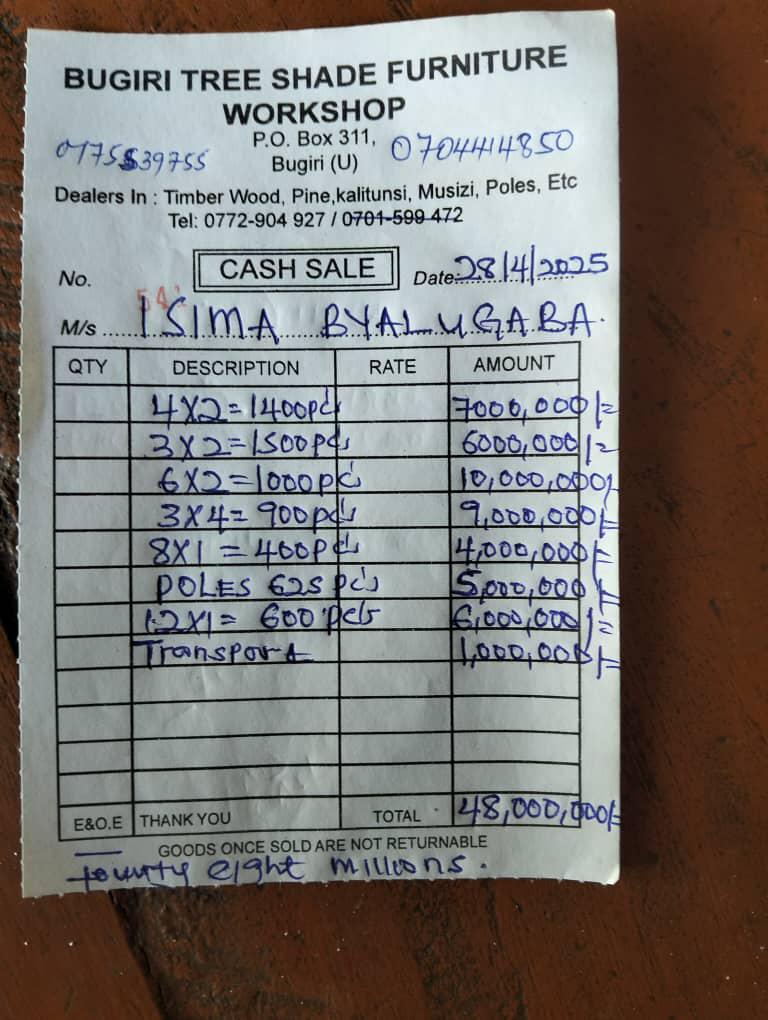 BUGIRI TREE SHADE FURNITURE
WORKSHOP
P.O. Box 311,
0775539755 Bugiri (U) 0704414850
Dealers In : Timber Wood, Pine,kalitunsi, Musizi, Poles, Etc
Tel: 0772-904 927 / 0701-599 472
No. 541 CASH SALE Date 28/4/2025
M/s ISIMA BYALUGABA.
QTY DESCRIPTION RATE AMOUNT
4X2=1400pcs 7000,000/=
3X2=1500pcs 6000,000/=
6X2=1000pcs 10,000,000/=
3X4=900pcs 9,000,000/=
8X1=400pcs 4,000,000/=
POLES 625 pcs 5,000,000/=
12X1=600pcs 6,000,000/=
Transport 1,000,000/=
E&O.E THANK YOU TOTAL 48,000,000/=
GOODS ONCE SOLD ARE NOT RETURNABLE
fourty eight millions.